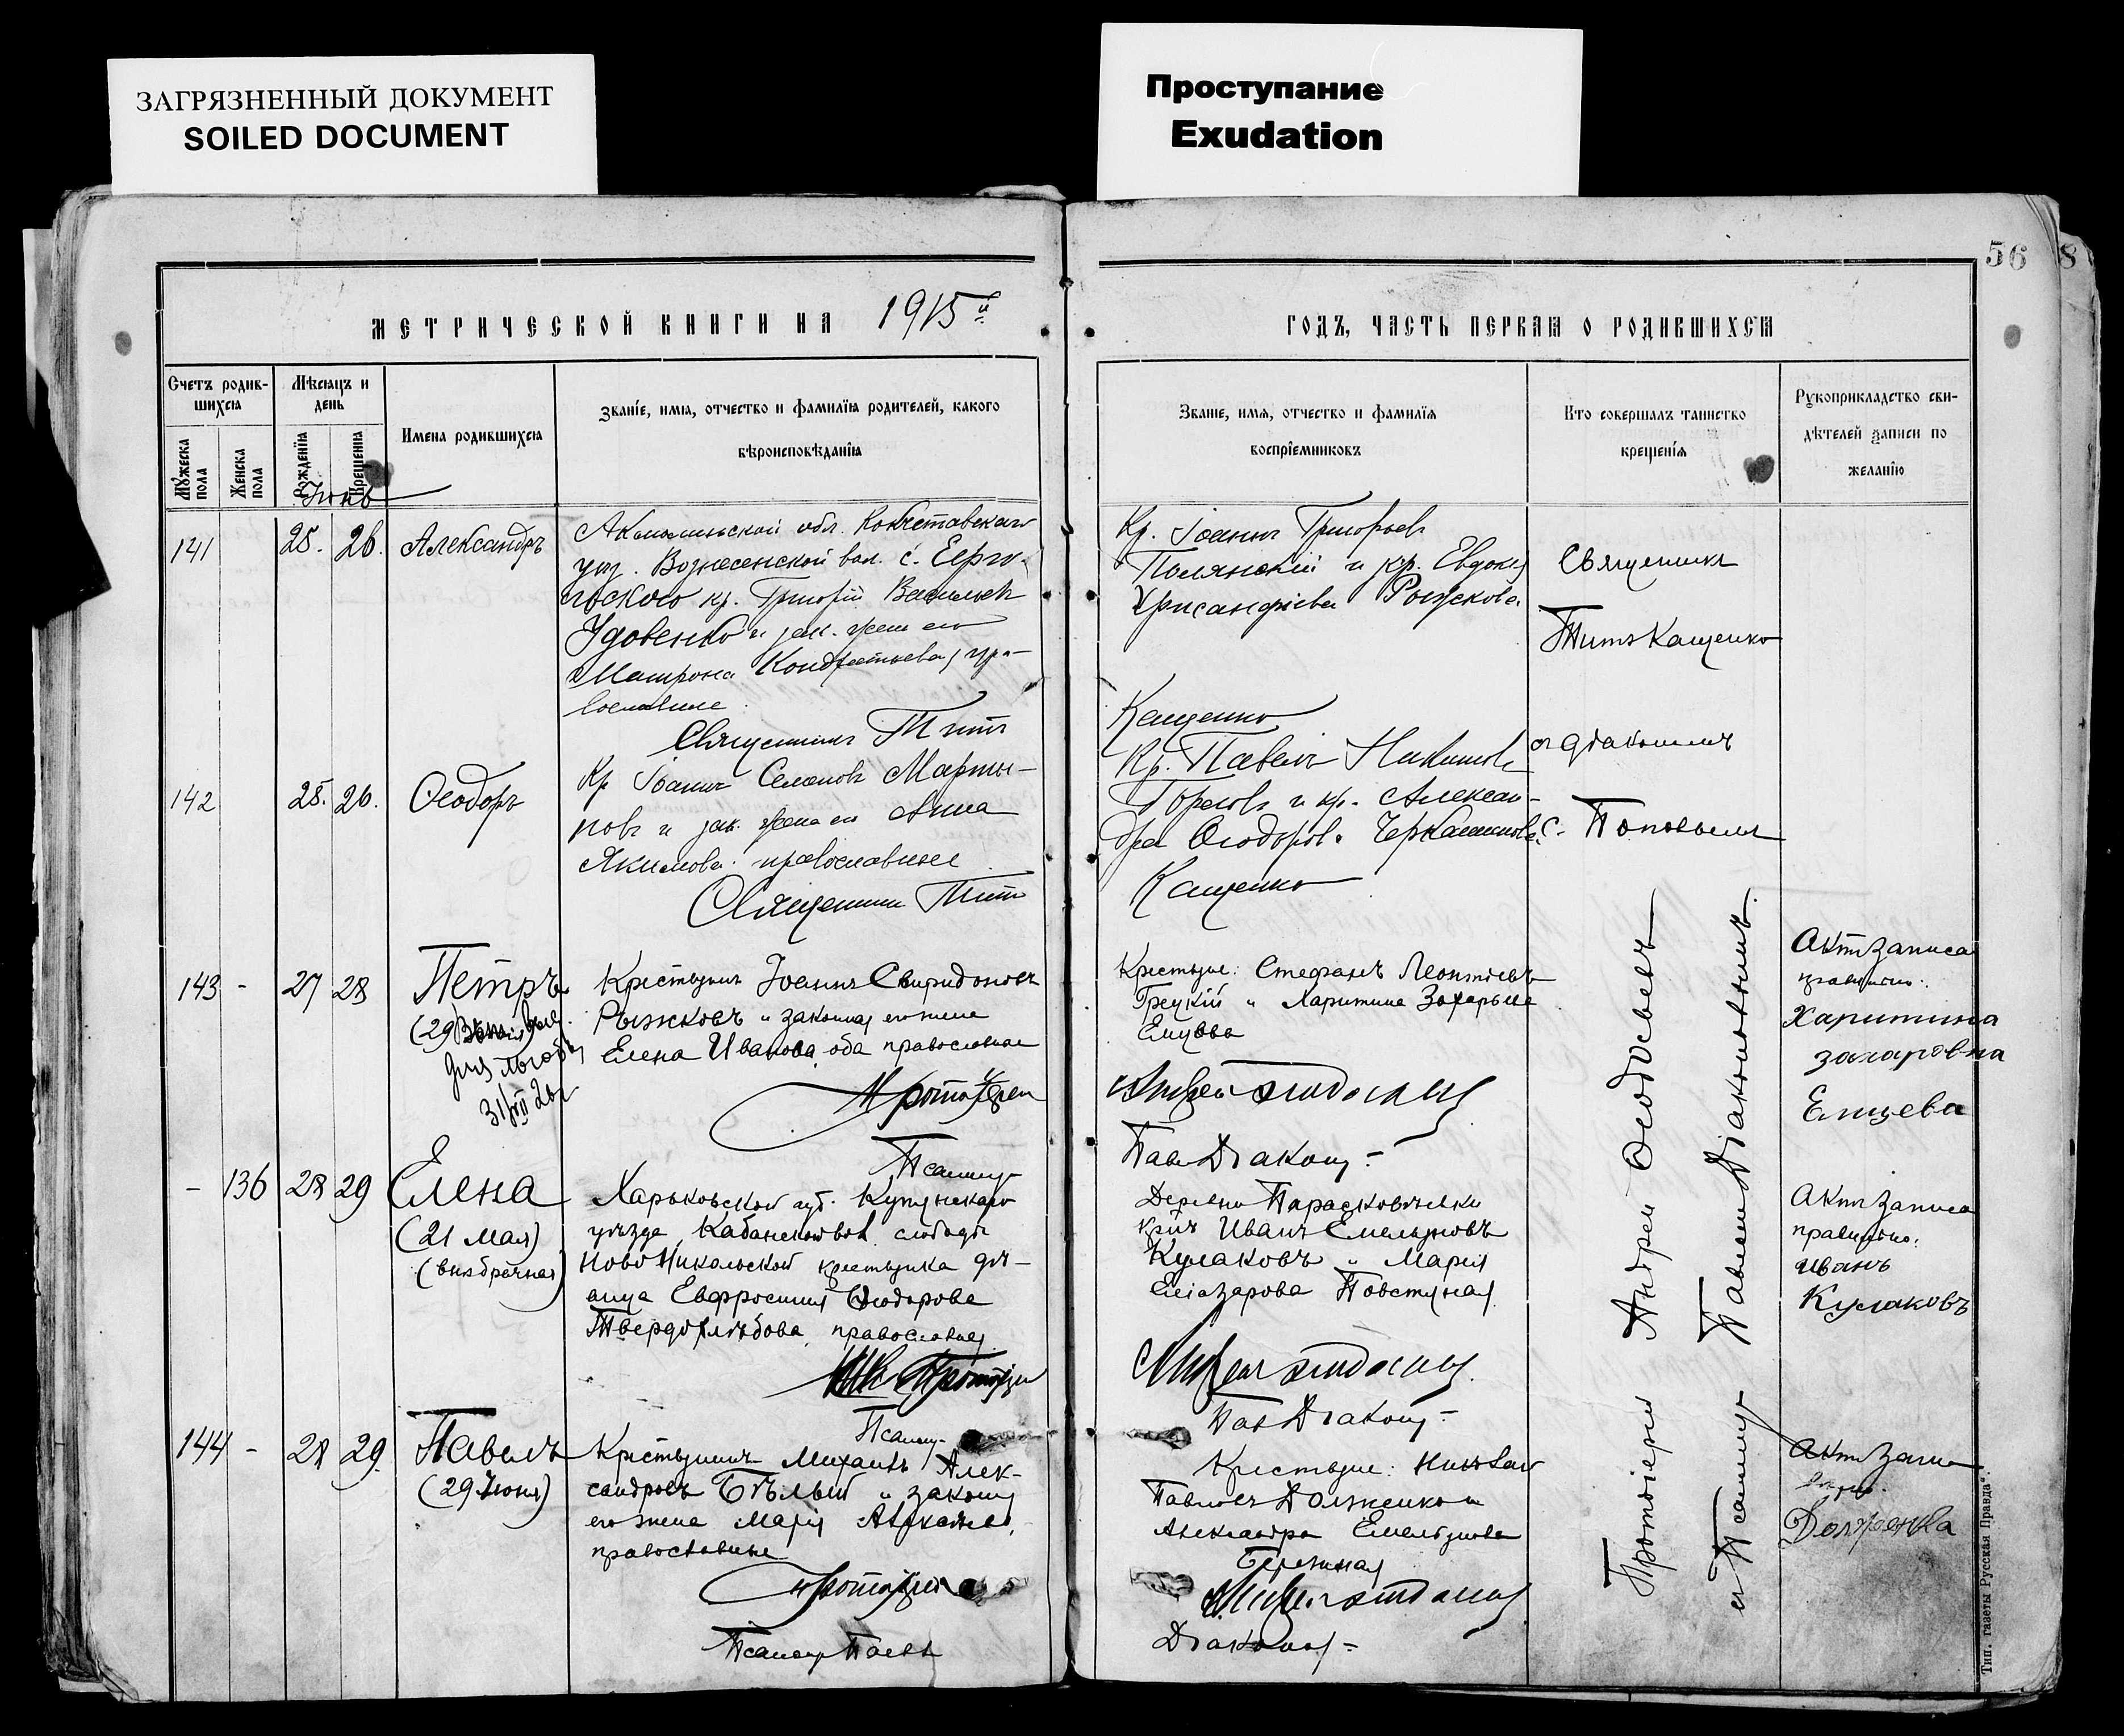 ЗАГРЯЗНЕННЫЙ ДОКУМЕНТ
SOILED DOCUMENT
Проступание
Exudation
56
8
МЕТРИЧЕСКОЙ КНИГИ НА 1915й
ГОДЪ, ЧАСТЬ ПЕРВАЯ О РОДИВШИХСЯ
Счетъ родив-
шихся
Мѣсяцъ и
день
Мужеска пола
Женска пола
Рожденія
Крещенія
Имена родившихся
Званіе, имя, отчество и фамилія родителей, какого
вѣроисповѣданія
Званіе, имя, отчество и фамилія
воспріемниковъ
Кто совершалъ таинство
крещенія
Рукоприкладство сви-
дѣтелей записи по
желанію
Іюнь
141 25. 26. Александръ
Акмолинской обл. Кокчетавскаго
уѣз. Вознесенской вол. с.
кр. Григорій Васильевъ
Удовенко и зак. жена его
Матрона Кондратьева, пра-
вославные.
Священникъ Титъ
Кр. Іоаннъ Григорьевъ
Полянскій и кр. Евдокія
Хрисанфіева Рыжкова.
Кащенко
Священникъ
Титъ Кащенко
съ діакономъ
С. Поповымъ
142 25. 26. Ѳеодоръ
Кр Іоаннъ Семеновъ Марты-
новъ и зак. жена его Анна
Якимова. православные
Священникъ Титъ
Кр. Павелъ Никитовъ
Горловъ и кр. Алексан-
дра Ѳеодорова Черкашинова.
Кащенко
143 - 27 28 Петръ
(29 Іюня)
31/VII 26 г
Крестьянинъ Іоаннъ Свиридоновъ
Рыжковъ и законная его жена
Елена Иванова, оба православные
Протоіерей
Псаломщ
Крестьяне: Стефанъ Леонтіевъ
Грецкій и Харитина Захарьева
Елцева
Андрей Ѳеодосіевъ
Пав Діаконц-
Актъ записа
правильно.
Харитина
захаровна
Елцева
- 136 28 29 Елена
(21 мая)
(внѣбрачная)
Харьковской губ. Купянскаго
уѣзда, Кабанской вол. слободы
Ново Никольской крестьянка дѣ-
вица Евфросинія Ѳеодорова
Твердохлѣбова, православная
Протоіерей
Псаломщ-
Деревни Парасковѣевки
кр-нъ Иванъ Емельяновъ
Кулаковъ и Марія
Еліазарова Повстяная
Андрей Ѳеодосіевъ
Пав Діаконц-
Актъ записа
правильно:
иванъ
Кулаковъ
144 - 28 29. Павелъ
(29 Іюня)
Крестьянинъ Михаилъ Алек-
сандровъ Бѣлый и законная
его жена Марія
православные
Протоіерей
Псаломщ Павелъ
Крестьяне:
Павловъ Долженко и
Александра Емельянова
Бережная
Андрей Ѳеодосіевъ
Діаконц-
Актъ запис
Долженка
Протоіерей Андрей Ѳеодосьевъ
и Псаломщ Павелъ Діаконовымъ
Тип. газеты „Русская Правда“.